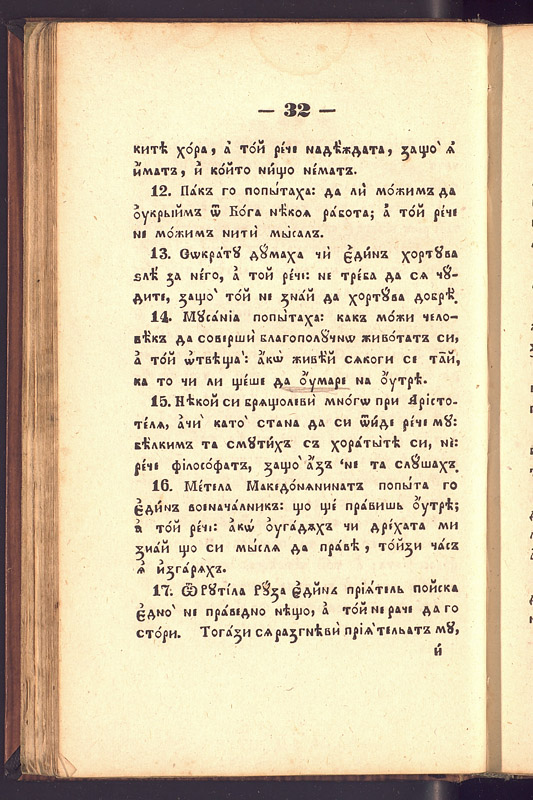 — 32 —
китѣ хо́ра, а̓ то́й ре́че надѣ́ждата, защо̀ ѧ̓
и҆́матъ, и҆ ко́йто ни́що не́матъ.
12. Па́къ го попы́таха: да ли̇̀ мо́жимъ да
ѹ҆крыймъ ѿ Бо́га нѣ́коѧ ра́бота; а̓ то́й ре́че
не мо́жимъ нити̇̀ мы́салъ.
13. Сѡкра́тꙋ дꙋ́маха чи̇̀ є҆ди́нъ хортꙋва
ѕлѣ̀ за не́го, а̓ той ре́чи: не тре́ба да сѧ чꙋ-
дите, защо̀ то́й не зна́й да хортꙋ́ва добрѣ̀.
14. Мꙋса́нїа попы́таха: какъ мо́жи чело-
вѣ́къ да соверши̇̀ благополꙋ́чнѡ живо́татъ си,
а̓ то́й ѡ҆твѣща̀: а҆́кѡ живѣ́й сѧкоги се та́й,
ка то чи ли ще́ше да ѹ҆́маре на ѹ҆́трѣ.
15. Нѣ́кой си брѧщолеви̇̀ мно́гѡ при А҆рі́сто-
те́лѧ, а҆чи̇̀ като̀ стана да си ѿи́де ре́че мꙋ:
вѣ́лкимъ та смꙋти́хъ съ хора́тытѣ си, ни̇̀:
ре́че фїлосо́фатъ, защо̀ а҆́зъ не та слꙋ́шахъ.
16. Ме́тела Македо́нѧнинатъ попы́та го
є҆ди́нъ военача́лникъ: що ще́ пра́вишь ѹ҆́трѣ;
а̓ то́й ре́чи: а҆́кѡ ѹ҆га́дѧхъ чи дре́хата ми
зна́й що си мы́слѧ да пра́вѣ, то́йзи ча́съ
ѧ̓ и҆зга́рѧхъ.
17. Ѿ Рꙋті́ла Рꙋ́за є҆ди́нъ прїѧ́тель пойска
є҆дно̀ не пра́ведно нѣ́що, а̓ то́й не раче да го
сто́ри. Тога́зи сѧ разгнѣви̇̀ прїѧ́тельатъ мꙋ,
и҆